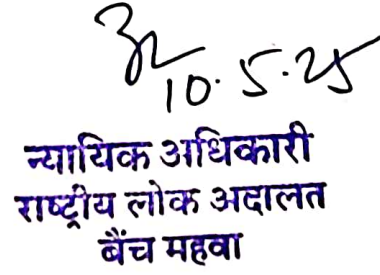 10.5.25
न्यायिक अधिकारी
राष्ट्रीय लोक अदालत
बैंच महवा